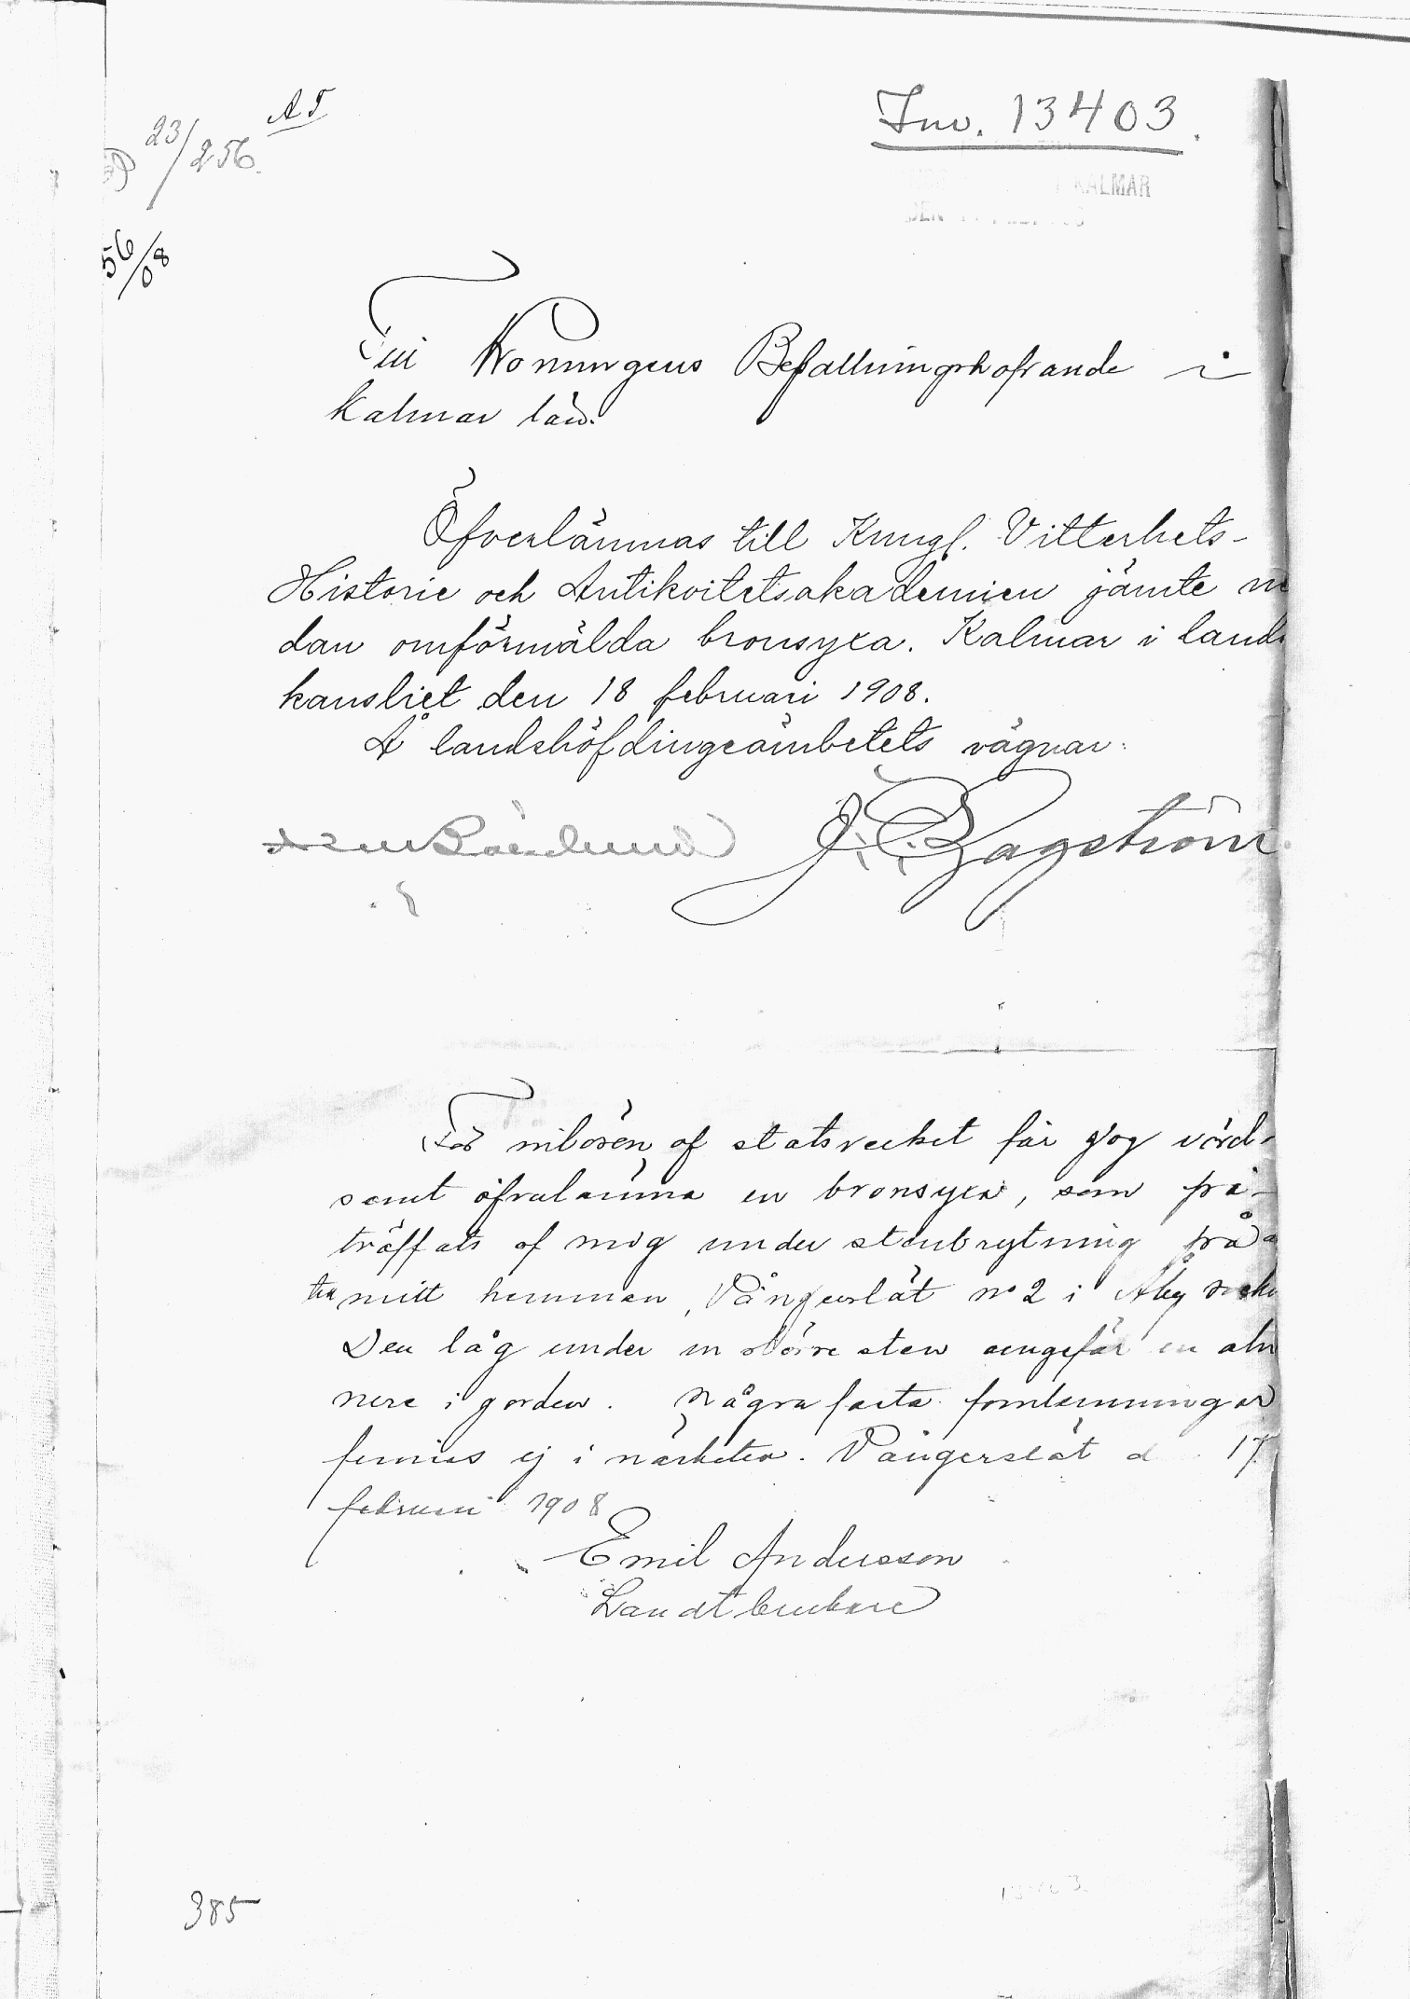 A T
23/256.
Inv. 13403.
KALMAR
DEN
56/08
Till Konungens Befallningshafvande i
Kalmar län.
Öfverlämnas till Kungl. Vitterhets-
Historie och Antikvitetsakademien jämte ne
dan omförmälda bronsyxa. Kalmar i lands
kansliet den 18 februari 1908.
Å landshöfdingeämbetets vägnar:
J. Bagström
För inlösen af statsverket får jag vörd-
samt öfverlämna en bronsyxa, som på-
träffats af mig under stenbrytning på
mitt hemman, Vångerslät no 2 i Åby sock
Den låg under en större sten ungefär en aln
nere i jorden. Några fasta fornlämningar
finnas ej i närheten. Vångerslät d 17
februari 1908
Emil Andersson
Landtbrukare
385